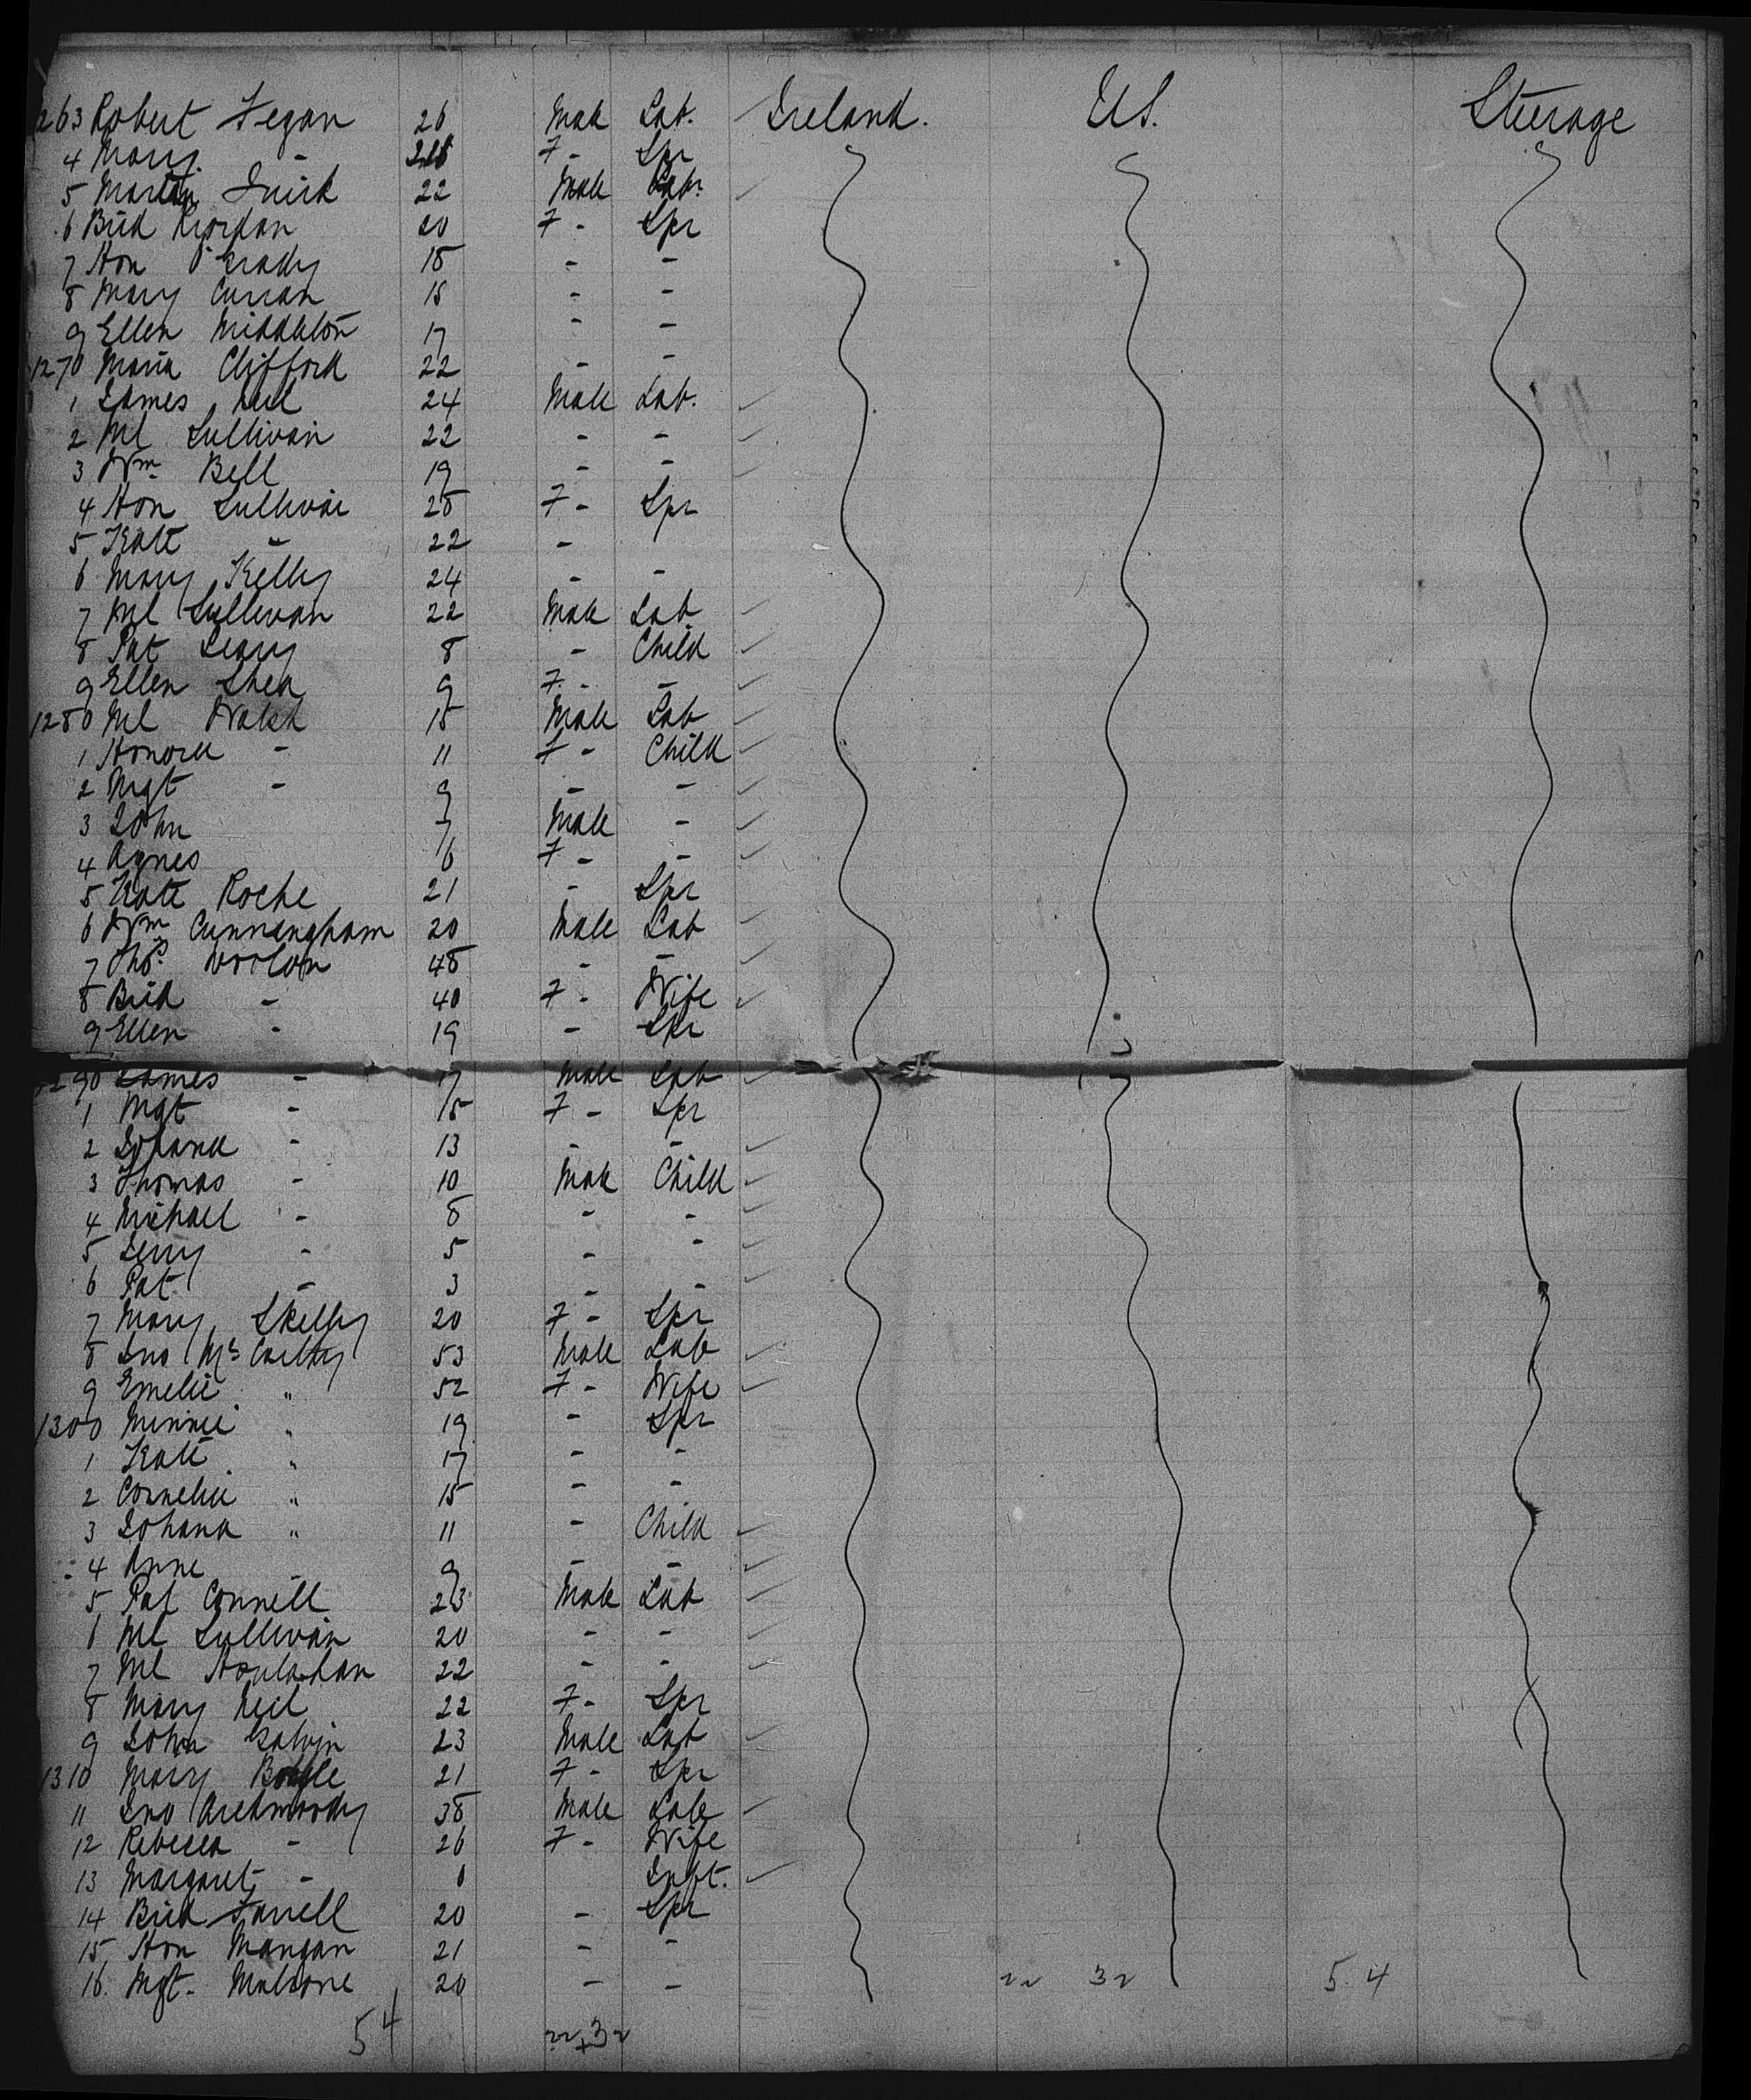 263 Robert Fegan 26 Male Lab. Ireland. U.S. Steerage
4 Mary - F - Spr
5 Martin Quirk 22 Male Lab.
6 Brid Riordan 20 F - Spr
7 Hon O'Grady 18 - -
8 Mary Curran 18 - -
9 Ellen Middleton 17 - -
1270 Maria Clifford 22 - -
1 James Neil 24 Male Lab.
2 Ml Sullivan 22 - -
3 Wm Bell 19 - -
4 Hon Sullivan 28 F - Spr
5 Kate - 22 -
6 Mary Kelly 24 - -
7 Ml Sullivan 22 Male Lab
8 Pat Leary 8 - Child
9 Ellen Shea 9 F - -
1280 Ml Walsh 18 Male Lab
1 Honora - 11 F - Child
2 Mgt - 9 - -
3 John 7 Male -
4 Agnes 6 F - -
5 Kate Roche 21 - Spr
6 Wm Cunningham 20 Male Lab
7 Thos. 48 - -
8 Brid - 40 F - Wife
9 Ellen - 19 - Spr
1290 James - 17 Male Lab
1 Mgt - 15 F - Spr
2 Johana - 13 - -
3 Thomas - 10 Male Child
4 Michael - 8 - -
5 Jerry - 5 - -
6 Pat - 3 - -
7 Mary Skelly 20 F - Spr
8 Jno McCarthy 53 Male Lab
9 Emelie " 52 F - Wife
1300 Minnie " 19 - Spr
1 Kate " 17 - -
2 Cornelia " 15 - -
3 Johana " 11 - Child
4 Anne 9 - -
5 Pat Connell 23 Male Lab
6 Ml Sullivan 20 - -
7 Ml Houlahan 22 - -
8 Mary Neil 22 F - Spr
9 John Galvin 23 Male Lab
1310 Mary 21 F - Spr
11 Jno Archmoody 38 Male Lab
12 Rebecca - 26 F - Wife
13 Margaret - 0 Inft.
14 Brid Farrell 20 - Spr
15 Hon Mangan 21 - -
16. Mgt. Malone 20 - - 22 32 54
54 22+32